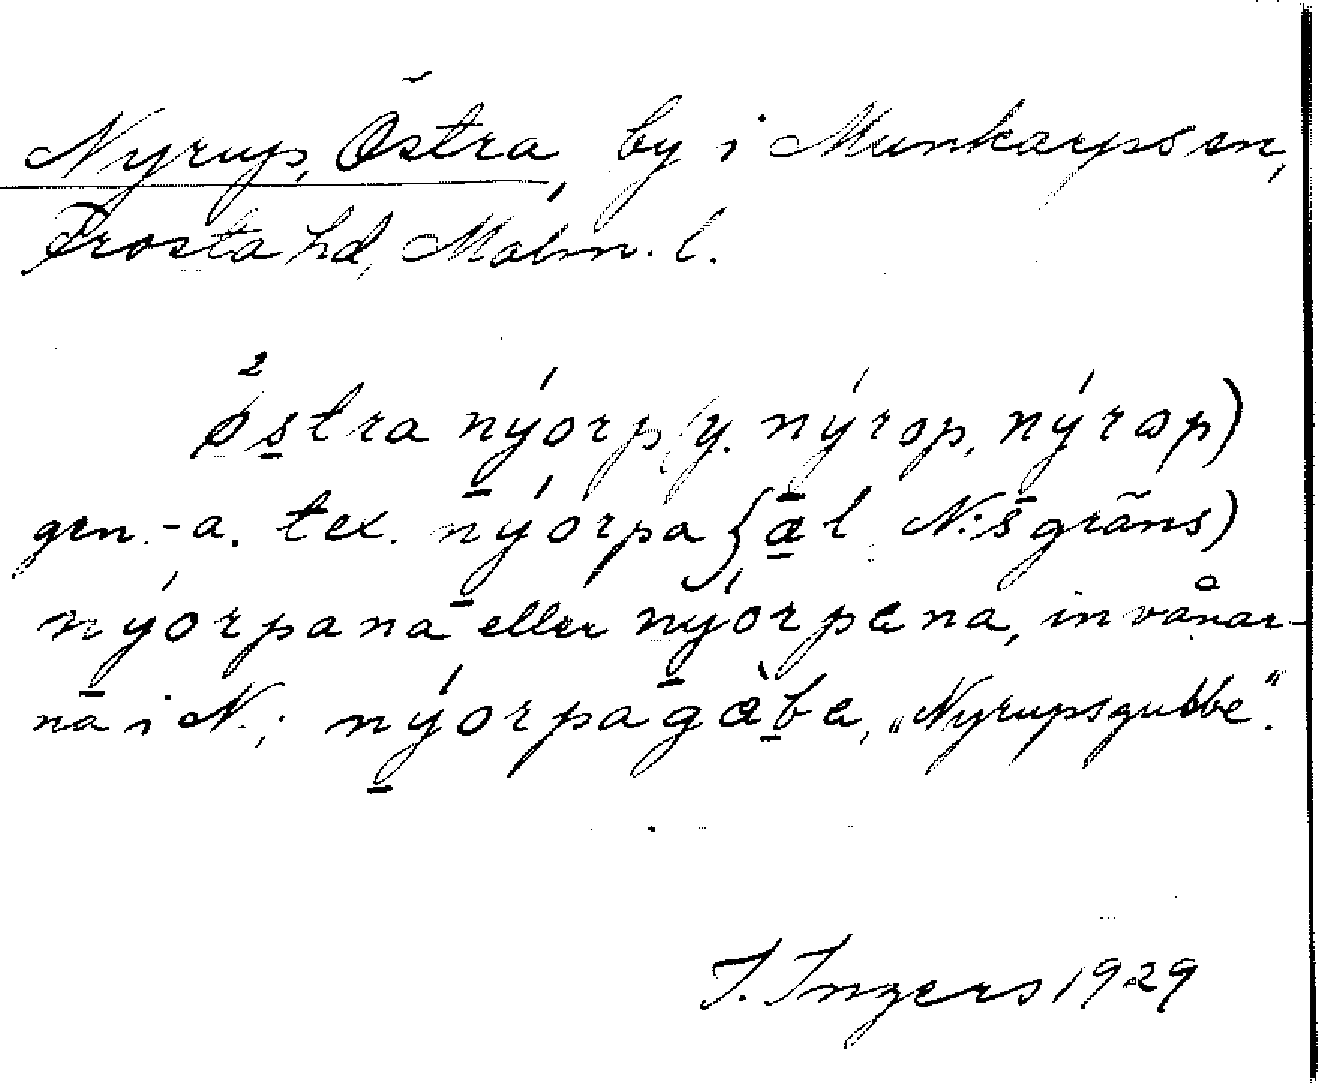 Nyrup, Östra, by i Munkarps sn,
Frosta hd, Malm. l.
östra nýorp (y. nýrop, nýrap)
gen. -a. tex. nýorpa (äl N:s gräns)
nýorpana eller nýorpena, invånar-
na i N.; nýorpagàbe, „Nyrupsgubbe".
I. Ingers 1929